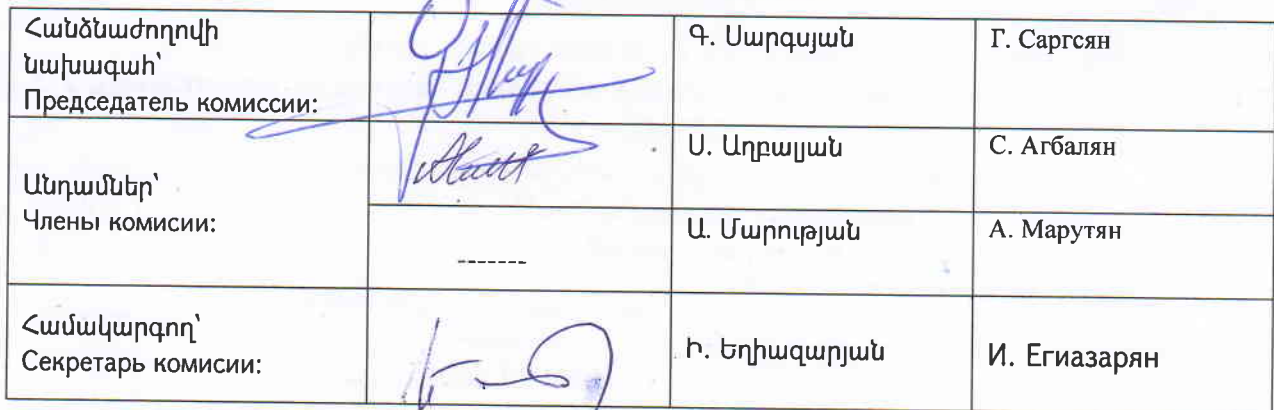 Հանձնաժողովի
նախագահ՝
Председатель комиссии:
Գ. Սարգսյան
Г. Саргсян
Անդամներ՝
Члены комисии:
Ս. Աղբալյան
С. Агбалян
-------
Ա. Մարության
А. Марутян
Համակարգող՝
Секретарь комисии:
Ի. Եղիազարյան
И. Егиазарян